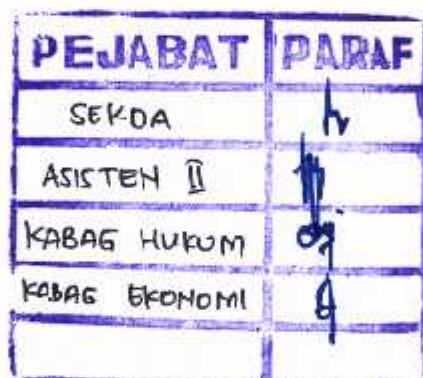 PEJABAT PARAF
SEKDA
ASISTEN II
KABAG HUKUM
KABAG EKONOMI